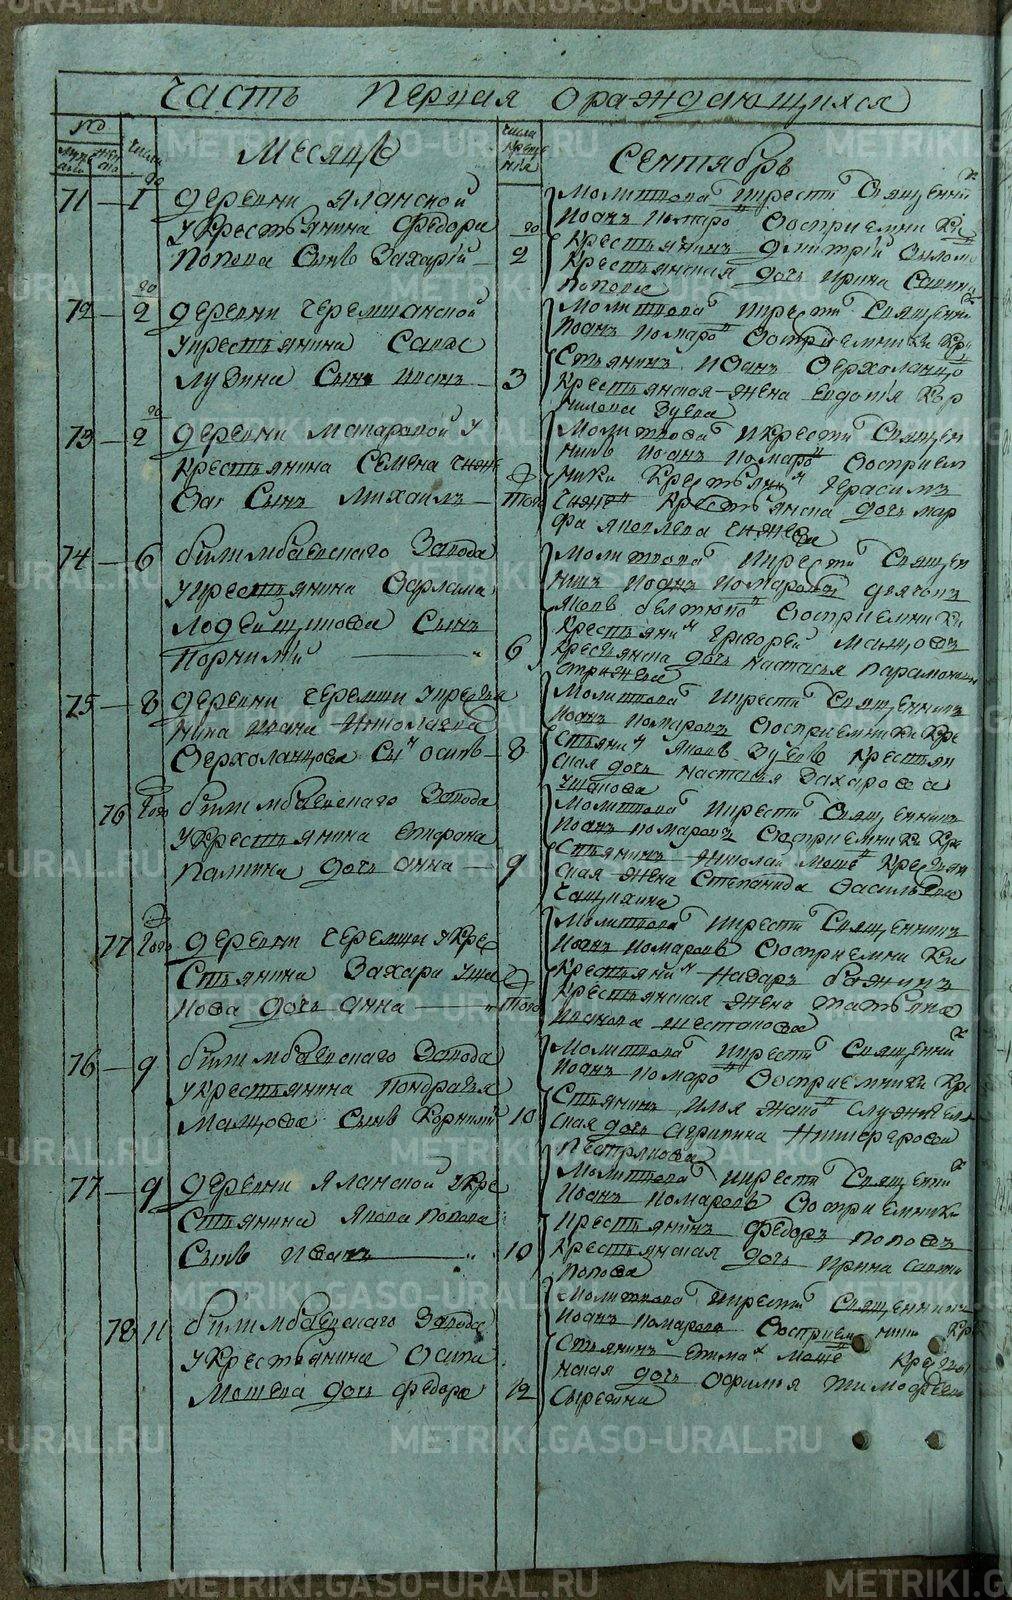 METRIKI.GASO-URAL.RU
Часть Первая ораждающихся
№
Числа
Месяцъ
Числа креще ния
Сентябрь
71 — 1 деревни Яланской
у крестьянина Федора
Попова Сынъ Захарий — 2
Молитвова и крести Священни
Иоанъ Комаро Восприемни
Крестьянинъ Дмитрий
Крестьянская дочь Ирина Савина
Попова
72 — 2 деревни Черемшанской
у крестьянина Савы
Лузина Сынъ Иванъ — 3
Молитвова и крести Священни
Иоанъ Комаро Восприемники Кре
стьянинъ Иванъ Верхоланцо
Крестьянская жена Евдотья Кор
нилова Зуева
73 — 2 деревни Макаровой у
крестьянина Семена
Сынъ Михаилъ — того
Молитвова и крести Священ
никъ Иоанъ Комаро Восприем
ники Крестьянин Герасимъ
Крестьянска дочь Мар
фа Яковлева
74 — 6 билимбаевскаго Завода
у крестьянина Варлама
Сынъ
Корнилий — 6
Молитвова и крести Священ
никъ Иоанъ Комаровъ дьячекъ
Яковъ Восприемники
Крестьянин Григорей Мальцовъ
Крестьянска дочь Настасья Парамонова
75 — 8 деревни Черемши у крестья
нина Ивана Николаева
Верхоланцова Сын Осипъ — 8
Молитвова и крести Священникъ
Иоанъ Комаровъ Восприемники Кре
стьянин Яковъ Зуевъ Крестьян
ская дочь Настасья Захарова
Ушакова
76 того билимбаевскаго Завода
у крестьянина Стефана
Палкина дочь Анна — 9
Молитвова и крести Священникъ
Иоанъ Комаровъ Восприемники Кре
стьянинъ Николай Моше Крестьян
ская жена Степанида Васильева
77 того деревни Черемши у кре
стьянина Захара Уша
кова дочь Анна — того
Молитвова и крести Священникъ
Иоанъ Комаровъ Восприемники
Крестьянин Назаръ Бажинъ
Крестьянская жена Татьяна
Иванова Шестакова
76 — 9 билимбаевскаго Завода
у крестьянина Кондратья
Мальцова Сынъ Корнилий 10
Молитвова и крести Священни
Иоанъ Комаро Восприемники Кре
стьянинъ Илья Служител
ская дочь Агрипина Никифорова
Пестрикова
77 — 9 деревни Яланской у кре
стьянина Якова Попова
Сынъ Иванъ — 10
Молитвова и крести Священни
Иоанъ Комаровъ Восприемники
Крестьянинъ Федоръ Поповъ
Крестьянская дочь Ирина Савина
Попова
78 11 билимбаевскаго Завода
у крестьянина Осипа
Мошева дочь Федора 12
Молитвова и крести Священникъ
Иоанъ Комаровъ Восприемники Кре
стьянинъ Ефима Моше Крестья
нская дочь Офимья Тимофеева